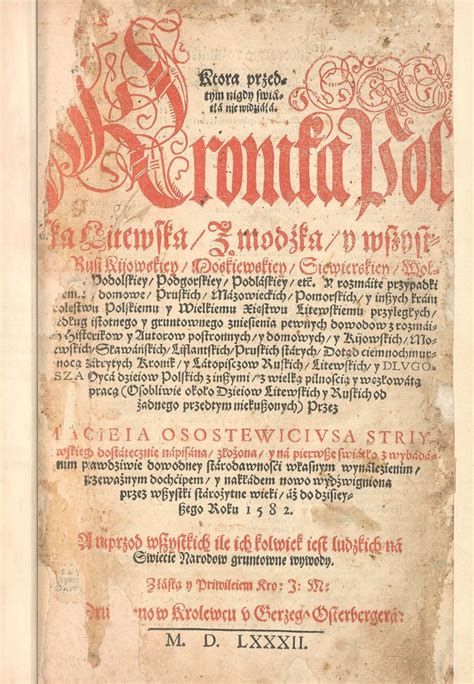 Ktora przed-
tym nigdy świa-
tła nie widziała.
Kronika Pol
ka Litewska / Żmodzka / y wszyst-
Rusi Kijowskiey / Moskiewskiey / Siewierskiey / Woł-
Podolskiey / Podgorskiey / Podláskiey / etc. Y rozmáite przypadki
domowe / Pruskich / Mázowieckich / Pomorskich / y inszych kráin
olestwu Polskiemu y Wielkiemu Xięstwu Litewskiemu przyległych /
edług istotnego y gruntownego zniesienia pewnych dowodow z rozmái-
Historikow y Autorow postronnych / y domowych / y Kijowskich / Mo-
ewskich / Sławáńskich / Liflantskich / Pruskich stárych / Dotąd ciemnochmur-
nocą zákrytych Kronik / y Látopiszczow Ruskich / Litewskich / y DLVGO-
SZA Oycá dzieiow Polskich z inszymi / z wielką pilnością y węzłowátą
pracą (Osobliwie około Dzieiow Litewskich y Ruskich od
żadnego przedtym niekuszonych) Przez
MACIEIA OSOSTEWICIVSA STRIY-
kowskiego dostátecznie nápisána / złożona / y ná pierwsze świátło z wybádá-
nim prawdziwie dowodney stárodawności własnym wynálezienim /
przeważnym dochćipem / y nakłádem nowo wydźwigniona
przez wszystki stárożytne wieki / áż do dzisiey-
szego Roku 1582.
A naprzod wszystkich ile ich kolwiek iest ludzkich ná
Swiecie Narodow gruntowne wywody.
Z łáską y Priwileiem Kro: J: M:
Dru no w Krolewcu v Gerzego Osterbergerá:
M. D. LXXXII.